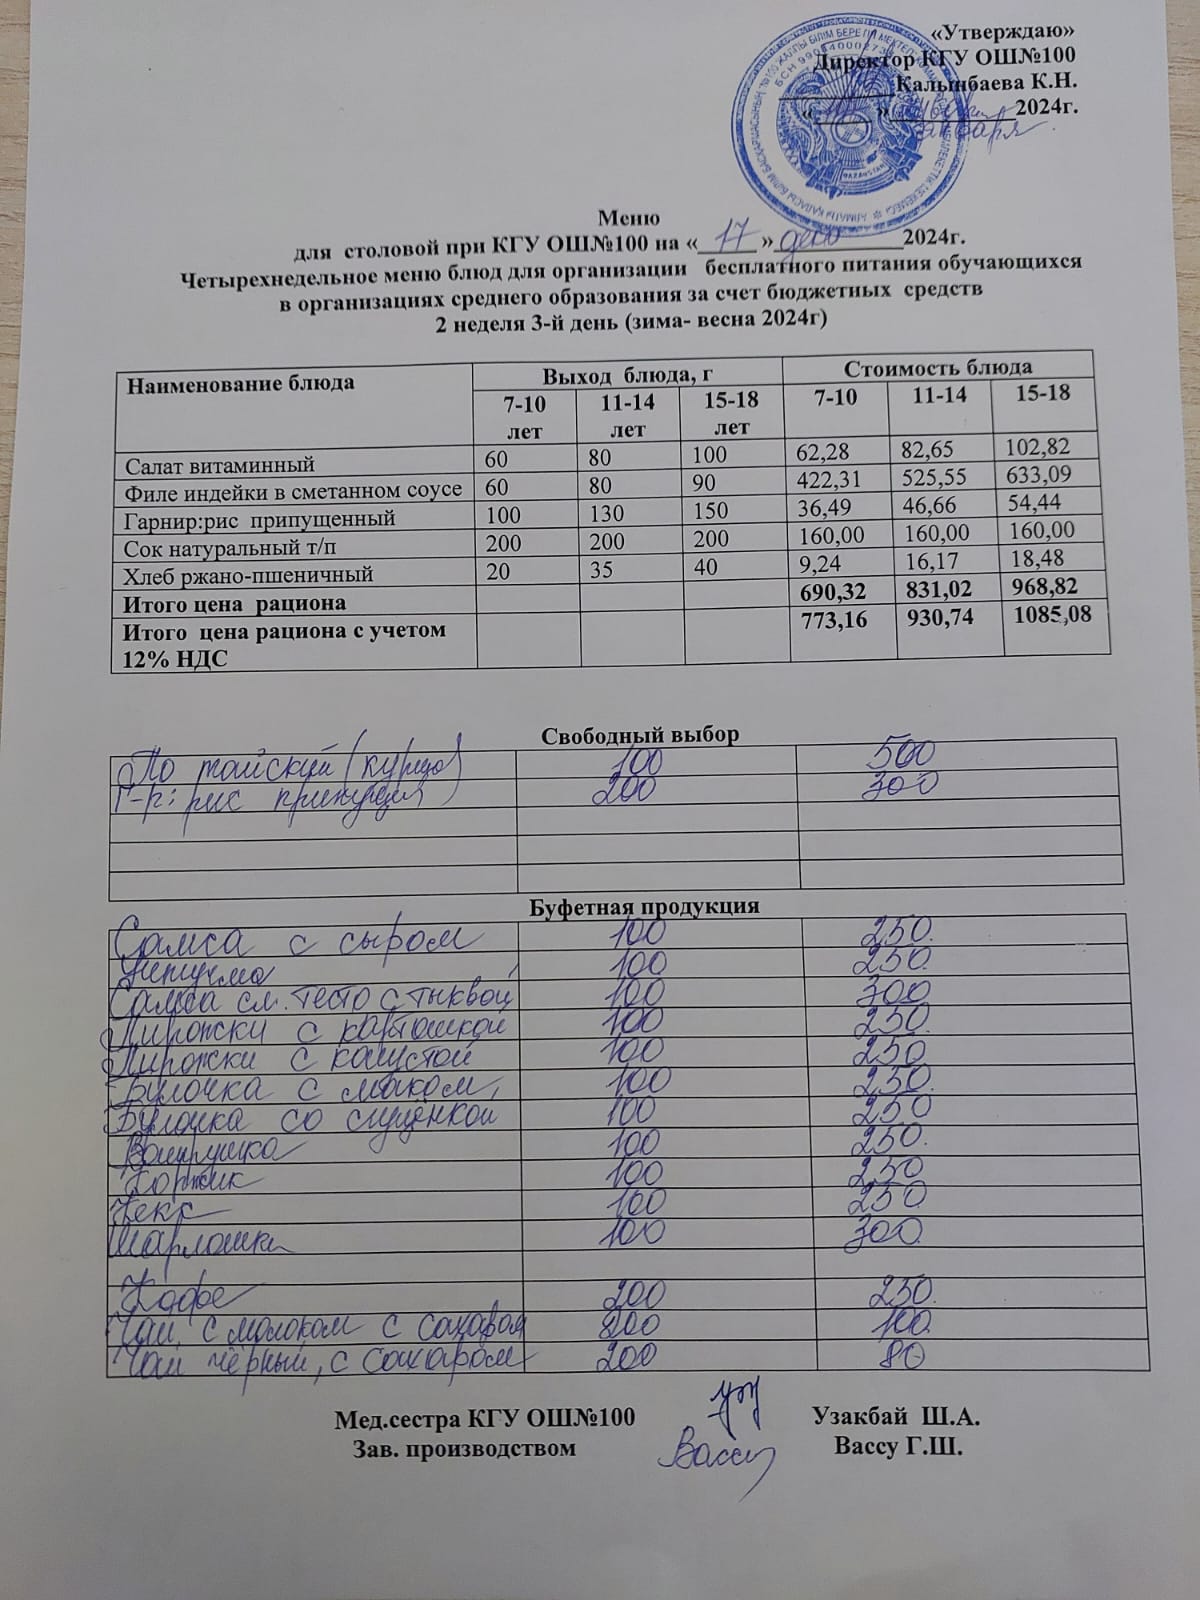 «Утверждаю»
Директор КГУ ОШ№100
____________Калынбаева К.Н.
«____» ____________2024г.
января
ҚАЗАҚSTAN
Меню
для столовой при КГУ ОШ№100 на «17» дек 2024г.
Четырехнедельное меню блюд для организации бесплатного питания обучающихся
в организациях среднего образования за счет бюджетных средств
2 неделя 3-й день (зима- весна 2024г)
Наименование блюда Выход блюда, г Стоимость блюда
7-10 лет 11-14 лет 15-18 лет 7-10 11-14 15-18
Салат витаминный 60 80 100 62,28 82,65 102,82
Филе индейки в сметанном соусе 60 80 90 422,31 525,55 633,09
Гарнир:рис припущенный 100 130 150 36,49 46,66 54,44
Сок натуральный т/п 200 200 200 160,00 160,00 160,00
Хлеб ржано-пшеничный 20 35 40 9,24 16,17 18,48
Итого цена рациона 690,32 831,02 968,82
Итого цена рациона с учетом 773,16 930,74 1085,08
12% НДС
Свободный выбор
По тайский (курица) 100 500
Г-р: рис 200 300
Буфетная продукция
Самса с сыром 100 250
100 250
Самса сл. тесто с тыквой 100 300
Пирожки с картошкой 100 250
Пирожки с капустой 100 250
Булочка с маком, 100 250
Булочка со сгущёнкой 100 250
Ватрушка 100 250
Коржик 100 250
Кекс 100 250
Шарлотка 100 300
Кофе 200 250
Чай с молоком с сахаром 200 100
Чай чёрный, с сахаром 200 80
Мед.сестра КГУ ОШ№100 Узакбай Ш.А.
Зав. производством Вассу Вассу Г.Ш.